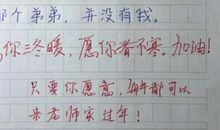 那个弟弟，并没有我。
，你三冬暖，愿你春不寒。加油！
只要你愿意，每年都可以
来老师家过年！